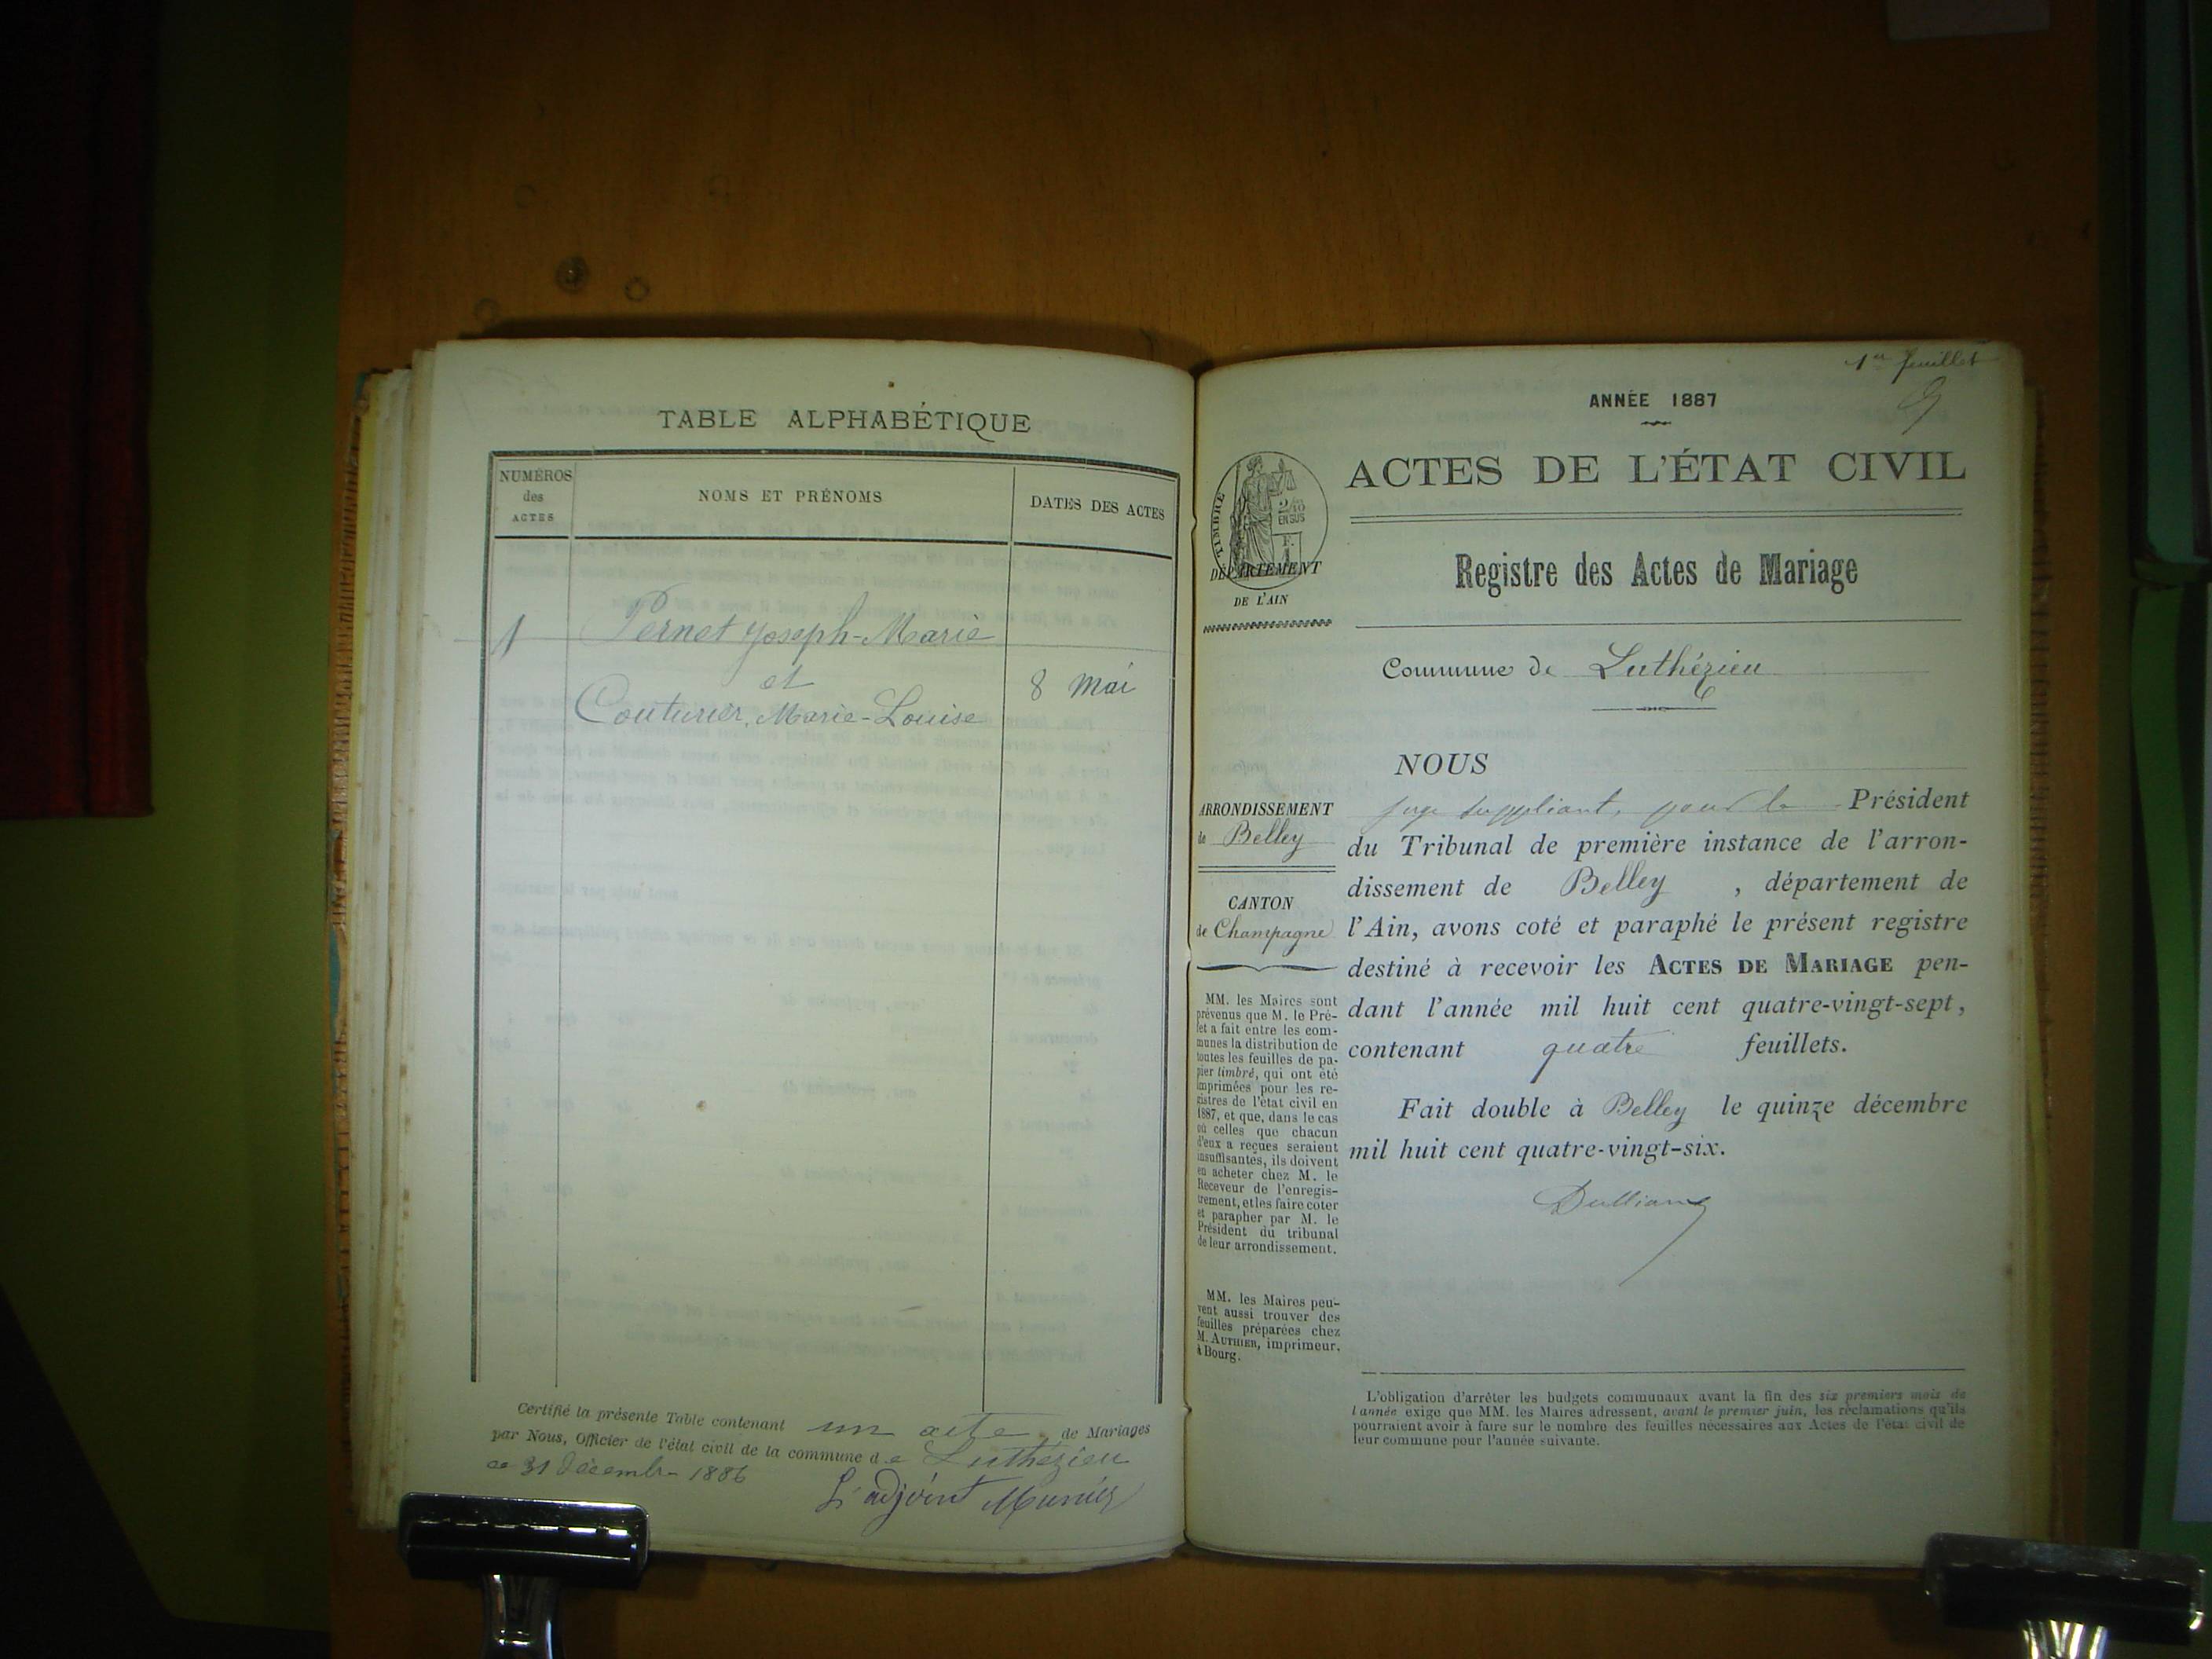 TABLE ALPHABÉTIQUE
NUMÉROS
des
ACTES
NOMS ET PRÉNOMS
DATES DES ACTES
1 Pernet Joseph-Marie
et
8 mai
Couturier, Marie-Louise
Certifié la présente Table contenant un acte de Mariages
par Nous, Officier de l'état civil de la commune de Luthézieu
ce 31 décembre 1886
L'adjoint Munier
1er feuillet
ANNÉE 1887
TIMBRE
2/10
EN SUS
F.
1
DÉPARTEMENT
DE L'AIN
ACTES DE L'ÉTAT CIVIL
Registre des Actes de Mariage
Commune de Luthézieu
ARRONDISSEMENT
de Belley
CANTON
de Champagne
MM. les Maires sont
prévenus que M. le Pré-
fet a fait entre les com-
munes la distribution de
toutes les feuilles de pa-
pier timbré, qui ont été
imprimées pour les re-
gistres de l'état civil en
1887, et que, dans le cas
où celles que chacun
d'eux a reçues seraient
insuffisantes, ils doivent
en acheter chez M. le
Receveur de l'enregis-
trement, et les faire coter
et parapher par M. le
Président du tribunal
de leur arrondissement.
MM. les Maires peu-
vent aussi trouver des
feuilles préparées chez
M. AUTHIER, imprimeur,
à Bourg.
NOUS
juge suppléant, pour le Président
du Tribunal de première instance de l'arron-
dissement de Belley , département de
l'Ain, avons coté et paraphé le présent registre
destiné à recevoir les ACTES DE MARIAGE pen-
dant l'année mil huit cent quatre-vingt-sept,
contenant quatre feuillets.
Fait double à Belley le quinze décembre
mil huit cent quatre-vingt-six.
L'obligation d'arrêter les budgets communaux avant la fin des six premiers mois de
l'année exige que MM. les Maires adressent, avant le premier juin, les réclamations qu'ils
pourraient avoir à faire sur le nombre des feuilles nécessaires aux Actes de l'état civil de
leur commune pour l'année suivante.